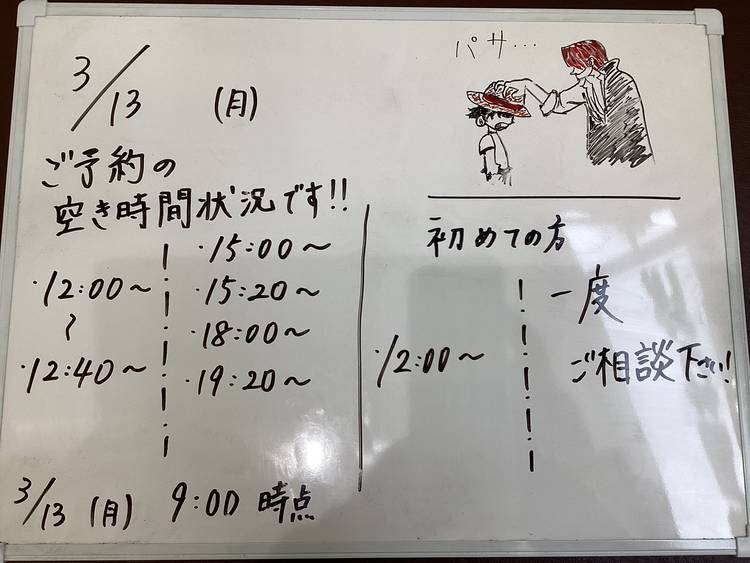 3/13 (月)
パサ…
ご予約の
空き時間状況です!!
・12:00～
～
・12:40～
・15:00～
・15:20～
・18:00～
・19:20～
初めての方
・12:00～
一度
ご相談下さい!
3/13 (月) 9:00 時点